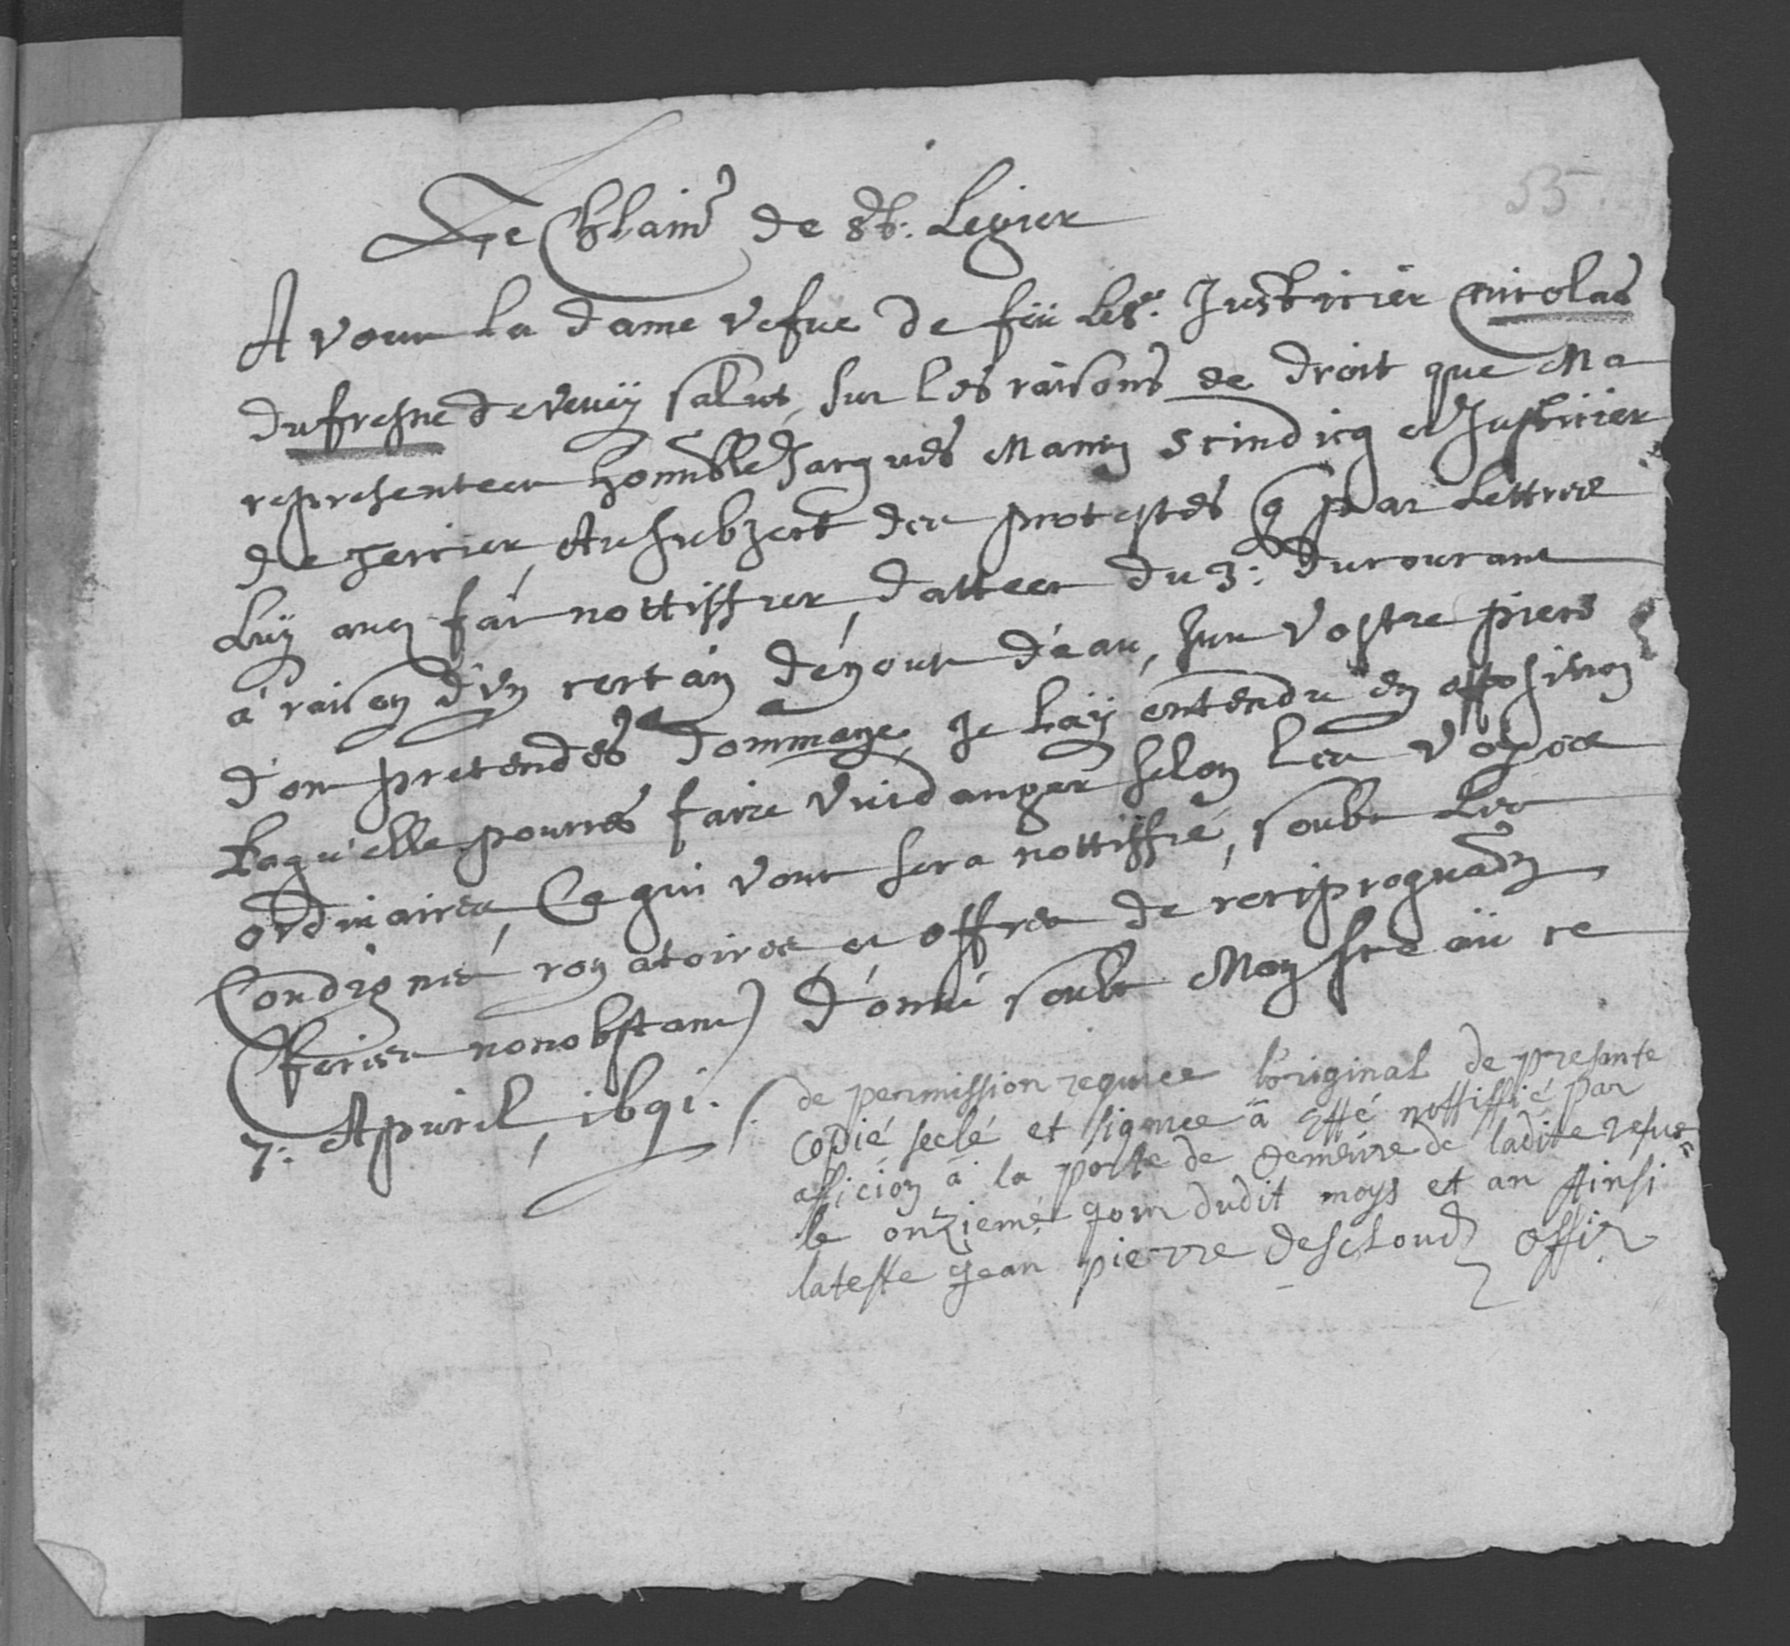 55
Le Chlain de St. Legier
A vous la dame vefue de fëu le Sr. Justicier Nicolas
dufresne de vevey salut, sur les raisons de droit que M'a
representees honnble Jaques Mamin Scindicq et Justicier
de Gercier, Au subject des protestes q par lettres
luy aues fai nottiffier, dattees du 3: du courant
a raison d'vn certain dégout d'eau, sur vostre piece
d'ou pretendes dommage, je l'aÿ entendu en opposition
laquelle pourres faire vuidanger selon les voyes
ordinaires, Ce qui vous sera nottiffié, soubs les
Condignes rogatoires et offres de reciproquaon
(feries nonobstant) Donné soubs Mon sceaü ce
7: Apuril, 1691.
de permission requise l'original de presante
copié seelé et signee â Etté nottiffié par
afficion â la porte de demeure de ladite vefue
le onzieme jour dudit moys et an Ainsi
lateste Jean pierre Descloud offir